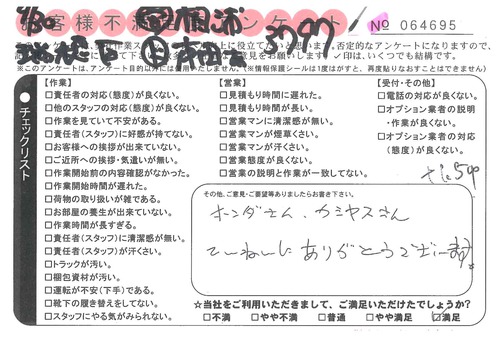 お客様不満
アンケート
No 064695
※このアンケートは、アンケート目的以外には使用いたしません。(※情報保護シールは1度はがすと、再度貼りなおすことはできません)
●チェックリスト
【作業】
□責任者の対応(態度)が良くない。
□他のスタッフの対応(態度)が良くない。
□作業を見ていて不安がある。
□責任者(スタッフ)に好感が持てない。
□お客様への挨拶が出来ていない。
□ご近所への挨拶・気遣いが無い。
□作業開始前の内容確認がなかった。
□作業開始時間が遅れた。
□荷物の取り扱いが雑である。
□お部屋の養生が出来ていない。
□作業時間が長すぎる。
□責任者(スタッフ)に清潔感が無い。
□責任者(スタッフ)が汗くさい。
□トラックが汚い。
□梱包資材が汚い。
□運転が不安(下手)である。
□靴下の履き替えをしてない。
□スタッフにやる気がみられない。
【営業】
□見積もり時間に遅れた。
□見積もり時間が長い。
□営業マンに清潔感が無い。
□営業マンが煙草くさい。
□営業マンが汗くさい。
□営業態度が良くない。
□営業の説明と作業が一致してない。
【受付・その他】
□電話の対応が良くない。
□オプション業者の説明
・作業が良くない。
□オプション業者の対応
(態度)が良くない。
その他、ご意見・ご要望等ありましたらお書き下さい。
ホンダさん、カミヤスさん
ていねいにありがとうございます
☆当社をご利用いただきまして、ご満足いただけたでしょうか?
□不満 □やや不満 □普通 □やや満足 ☑満足